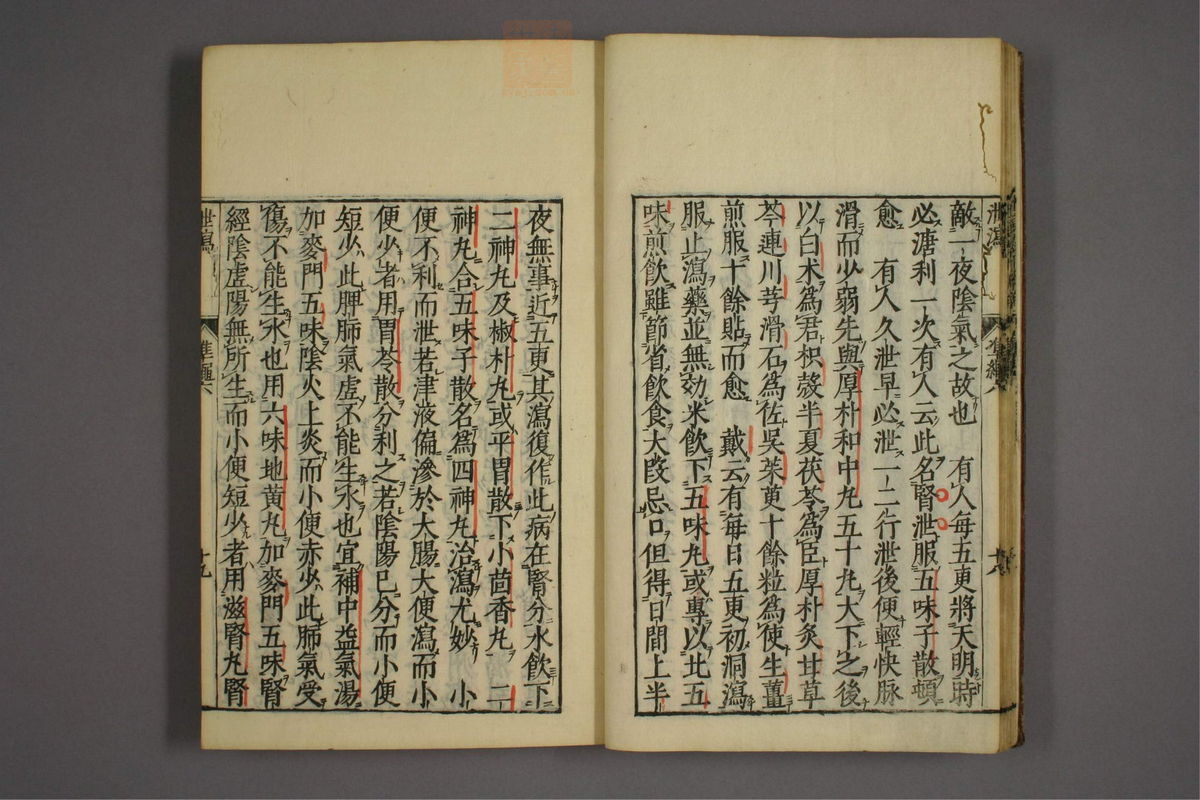 敵一夜陰氣之故也　有人每五更將天明時
必溏利一次有人云此名腎泄服五味子散頓
愈　有人久泄早必泄一二行泄後便輕快脉
滑而少弱先與厚朴和中丸五十丸大下之後
以白朮爲君枳殼半夏茯苓爲臣厚朴炙甘草
芩連川芎滑石爲佐吳茱萸十餘粒爲使生薑
煎服十餘貼而愈　戴云有每日五更初洞瀉
服止瀉藥並無効米飲下五味丸或專以北五
味煎飲雖節省飲食大段忌口但得日間上半
夜無事近五更其瀉復作此病在腎分水飲下
二神丸及椒朴丸或平胃散下小茴香丸　二
神丸合五味子散名爲四神丸治瀉尤妙　小
便不利而泄若津液偏滲於大腸大便瀉而小
便少者用胃苓散分利之若陰陽已分而小便
短少此脾肺氣虛不能生水也宜補中益氣湯
加麥門五味陰火上炎而小便赤少此肺氣受
傷不能生水也用六味地黃丸加麥門五味腎
經陰虛陽無所生而小便短少者用滋腎丸腎